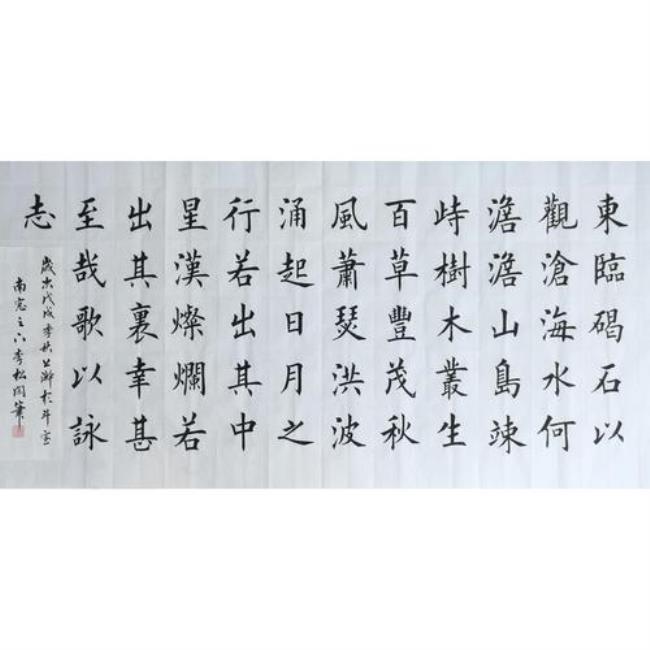 東臨碣石以
觀滄海水何
澹澹山島竦
峙樹木叢生
百草豐茂秋
風蕭瑟洪波
涌起日月之
行若出其中
星漢燦爛若
出其裏幸甚
至哉歌以詠
志
歲次戊戌季秋於斗室
南窓之下李松閣筆